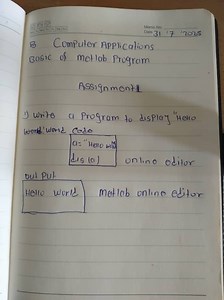 Date 31 7 2025
B Computer Applications
BASIC of matlab Program
Assignment 1
1 write a Program to display "Hello
world" word code
a= "Hello
disp(a)
online editor
out put
Hello world
Matlab online editor